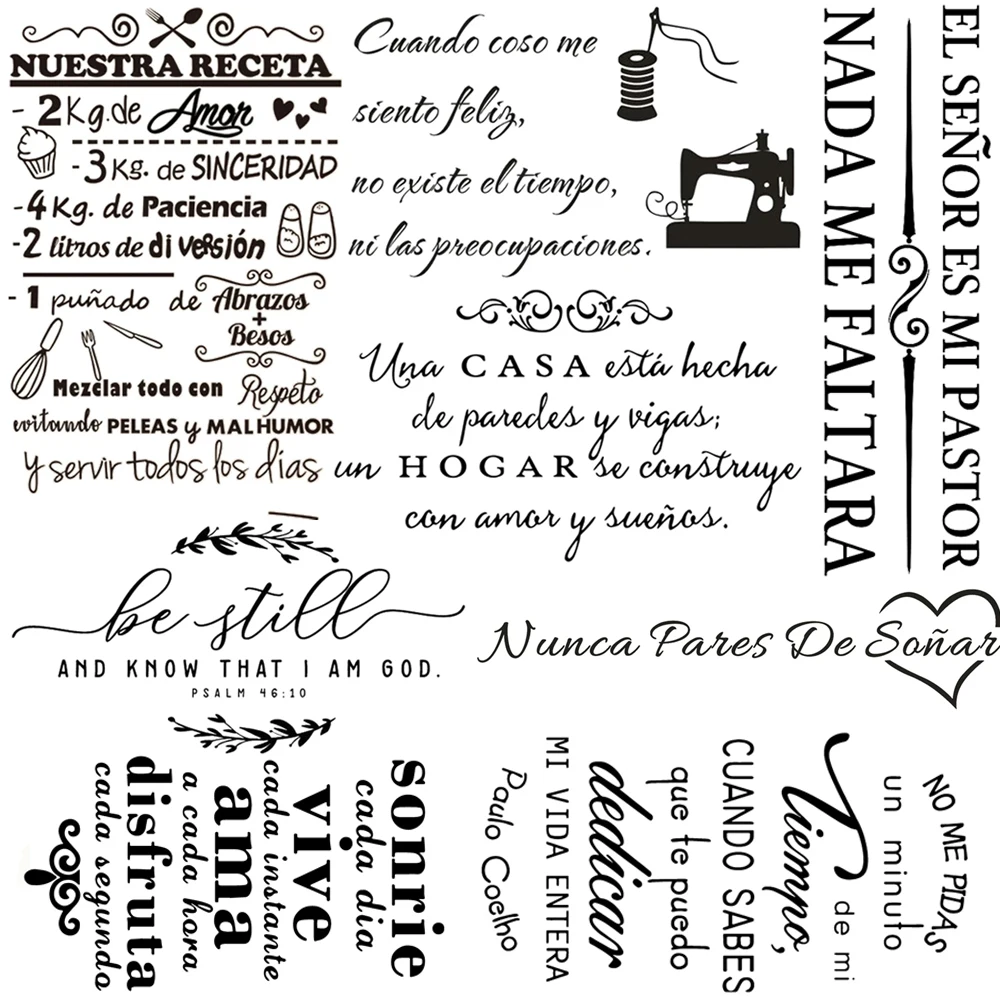 NUESTRA RECETA
- 2 Kg. de Amor
- 3 Kg. de SINCERIDAD
- 4 Kg. de Paciencia
- 2 litros de diversión
- 1 puñado de Abrazos
+
Besos
Mezclar todo con Respeto
evitando PELEAS y MALHUMOR
y servir todos los días
Cuando coso me
siento feliz,
no existe el tiempo,
ni las preocupaciones.
Una CASA está hecha
de paredes y vigas;
un HOGAR se construye
con amor y sueños.
EL SEÑOR ES MI PASTOR
NADA ME FALTARA
be still
AND KNOW THAT I AM GOD.
PSALM 46:10
Nunca Pares De Soñar
sonrie
cada dia
vive
cada instante
ama
a cada hora
disfruta
cada segundo
NO ME PIDAS
un minuto
de mi
Tiempo,
CUANDO SABES
que te puedo
dedicar
MI VIDA ENTERA
Paulo Coelho